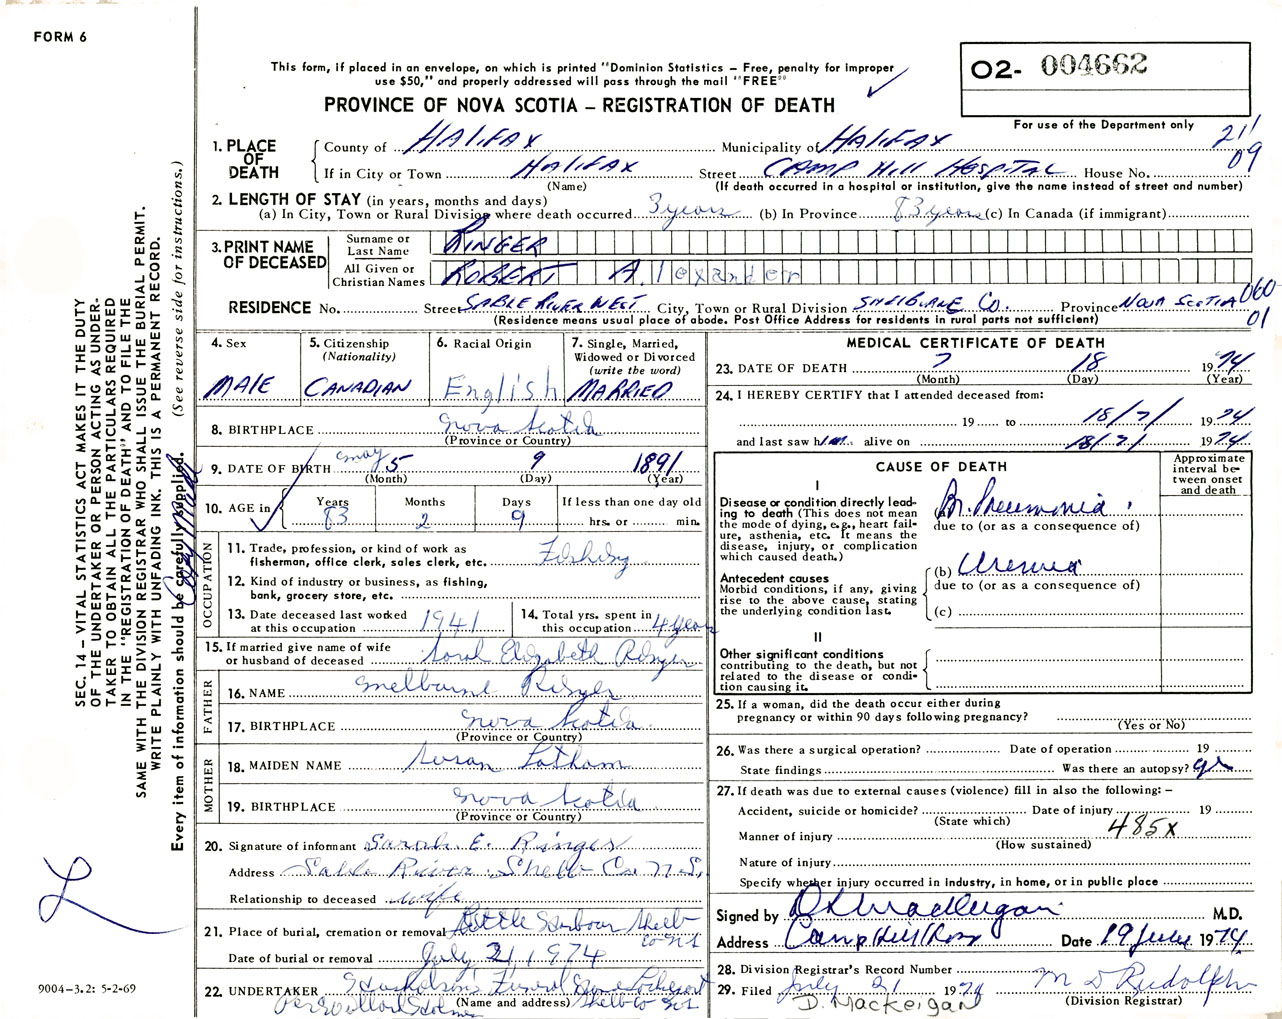 FORM 6
This form, if placed in an envelope, on which is printed "Dominion Statistics – Free, penalty for improper
use $50," and properly addressed will pass through the mail "FREE"
PROVINCE OF NOVA SCOTIA – REGISTRATION OF DEATH
O2- 004662
For use of the Department only
211
09
1. PLACE OF DEATH
County of HALIFAX Municipality of HALIFAX
If in City or Town HALIFAX Street CAMP HILL HOSPITAL House No.
(Name) (If death occurred in a hospital or institution, give the name instead of street and number)
2. LENGTH OF STAY (in years, months and days)
(a) In City, Town or Rural Division where death occurred 3 years (b) In Province 83 years (c) In Canada (if immigrant)
3. PRINT NAME OF DECEASED
Surname or Last Name RINGER
All Given or Christian Names ROBERT A. lexander
RESIDENCE No. Street SABLE RIVER WEST City, Town or Rural Division SHELBURNE CO. Province NOVA SCOTIA 060-
01
(Residence means usual place of abode. Post Office Address for residents in rural parts not sufficient)
4. Sex MALE
5. Citizenship (Nationality) CANADIAN
6. Racial Origin English
7. Single, Married, Widowed or Divorced (write the word) MARRIED
8. BIRTHPLACE Nova Scotia
(Province or Country)
9. DATE OF BIRTH May 5 9 1891
(Month) (Day) (Year)
10. AGE in Years 83 Months 2 Days 9 If less than one day old hrs. or min.
OCCUPATION
11. Trade, profession, or kind of work as
fisherman, office clerk, sales clerk, etc. Fishing
12. Kind of industry or business, as fishing,
bank, grocery store, etc.
13. Date deceased last worked
at this occupation 1941
14. Total yrs. spent in
this occupation 4 years
15. If married give name of wife
or husband of deceased Sarah Elizabeth Ringer
FATHER
16. NAME Melbourne Ringer
17. BIRTHPLACE Nova Scotia
(Province or Country)
MOTHER
18. MAIDEN NAME Susan Latham
19. BIRTHPLACE Nova Scotia
(Province or Country)
20. Signature of informant Sarah E. Ringer
Address Sable River Shelb Co. N.S.
Relationship to deceased wife
21. Place of burial, cremation or removal Little Harbour Shelb
Co NS
Date of burial or removal July 21 1974
22. UNDERTAKER Funeral Home Lockeport
(Name and address) Shelb Co NS
Per
MEDICAL CERTIFICATE OF DEATH
23. DATE OF DEATH 7 18 1974
(Month) (Day) (Year)
24. I HEREBY CERTIFY that I attended deceased from:
19 to 18/7/ 1974
and last saw him alive on 18/7/ 1974
CAUSE OF DEATH
Approximate interval between onset and death
I
Disease or condition directly lead-
ing to death (This does not mean
the mode of dying, e.g., heart fail-
ure, asthenia, etc. It means the
disease, injury, or complication
which caused death.)
(a) Br. Pneumonia
due to (or as a consequence of)
Antecedent causes
Morbid conditions, if any, giving
rise to the above cause, stating
the underlying condition last.
(b) Uremia
due to (or as a consequence of)
(c)
II
Other significant conditions
contributing to the death, but not
related to the disease or condi-
tion causing it.
25. If a woman, did the death occur either during
pregnancy or within 90 days following pregnancy?
(Yes or No)
26. Was there a surgical operation? Date of operation 19
State findings Was there an autopsy? yes
27. If death was due to external causes (violence) fill in also the following: –
Accident, suicide or homicide? Date of injury 19
(State which)
Manner of injury 485X
(How sustained)
Nature of injury
Specify whether injury occurred in industry, in home, or in public place
Signed by M.D.
Address Camp Hill Hosp Date 19 July 1974
28. Division Registrar's Record Number
29. Filed July 21 1974 M D Rudolph
D. Mackeigan (Division Registrar)
SEC. 14 – VITAL STATISTICS ACT MAKES IT THE DUTY
OF THE UNDERTAKER OR PERSON ACTING AS UNDER-
TAKER TO OBTAIN ALL THE PARTICULARS REQUIRED
IN THE "REGISTRATION OF DEATH" AND TO FILE THE
SAME WITH THE DIVISION REGISTRAR WHO SHALL ISSUE THE BURIAL PERMIT.
WRITE PLAINLY WITH UNFADING INK. THIS IS A PERMANENT RECORD.
Every item of information should be carefully supplied. (See reverse side for instructions.)
9004-3.2: 5-2-69